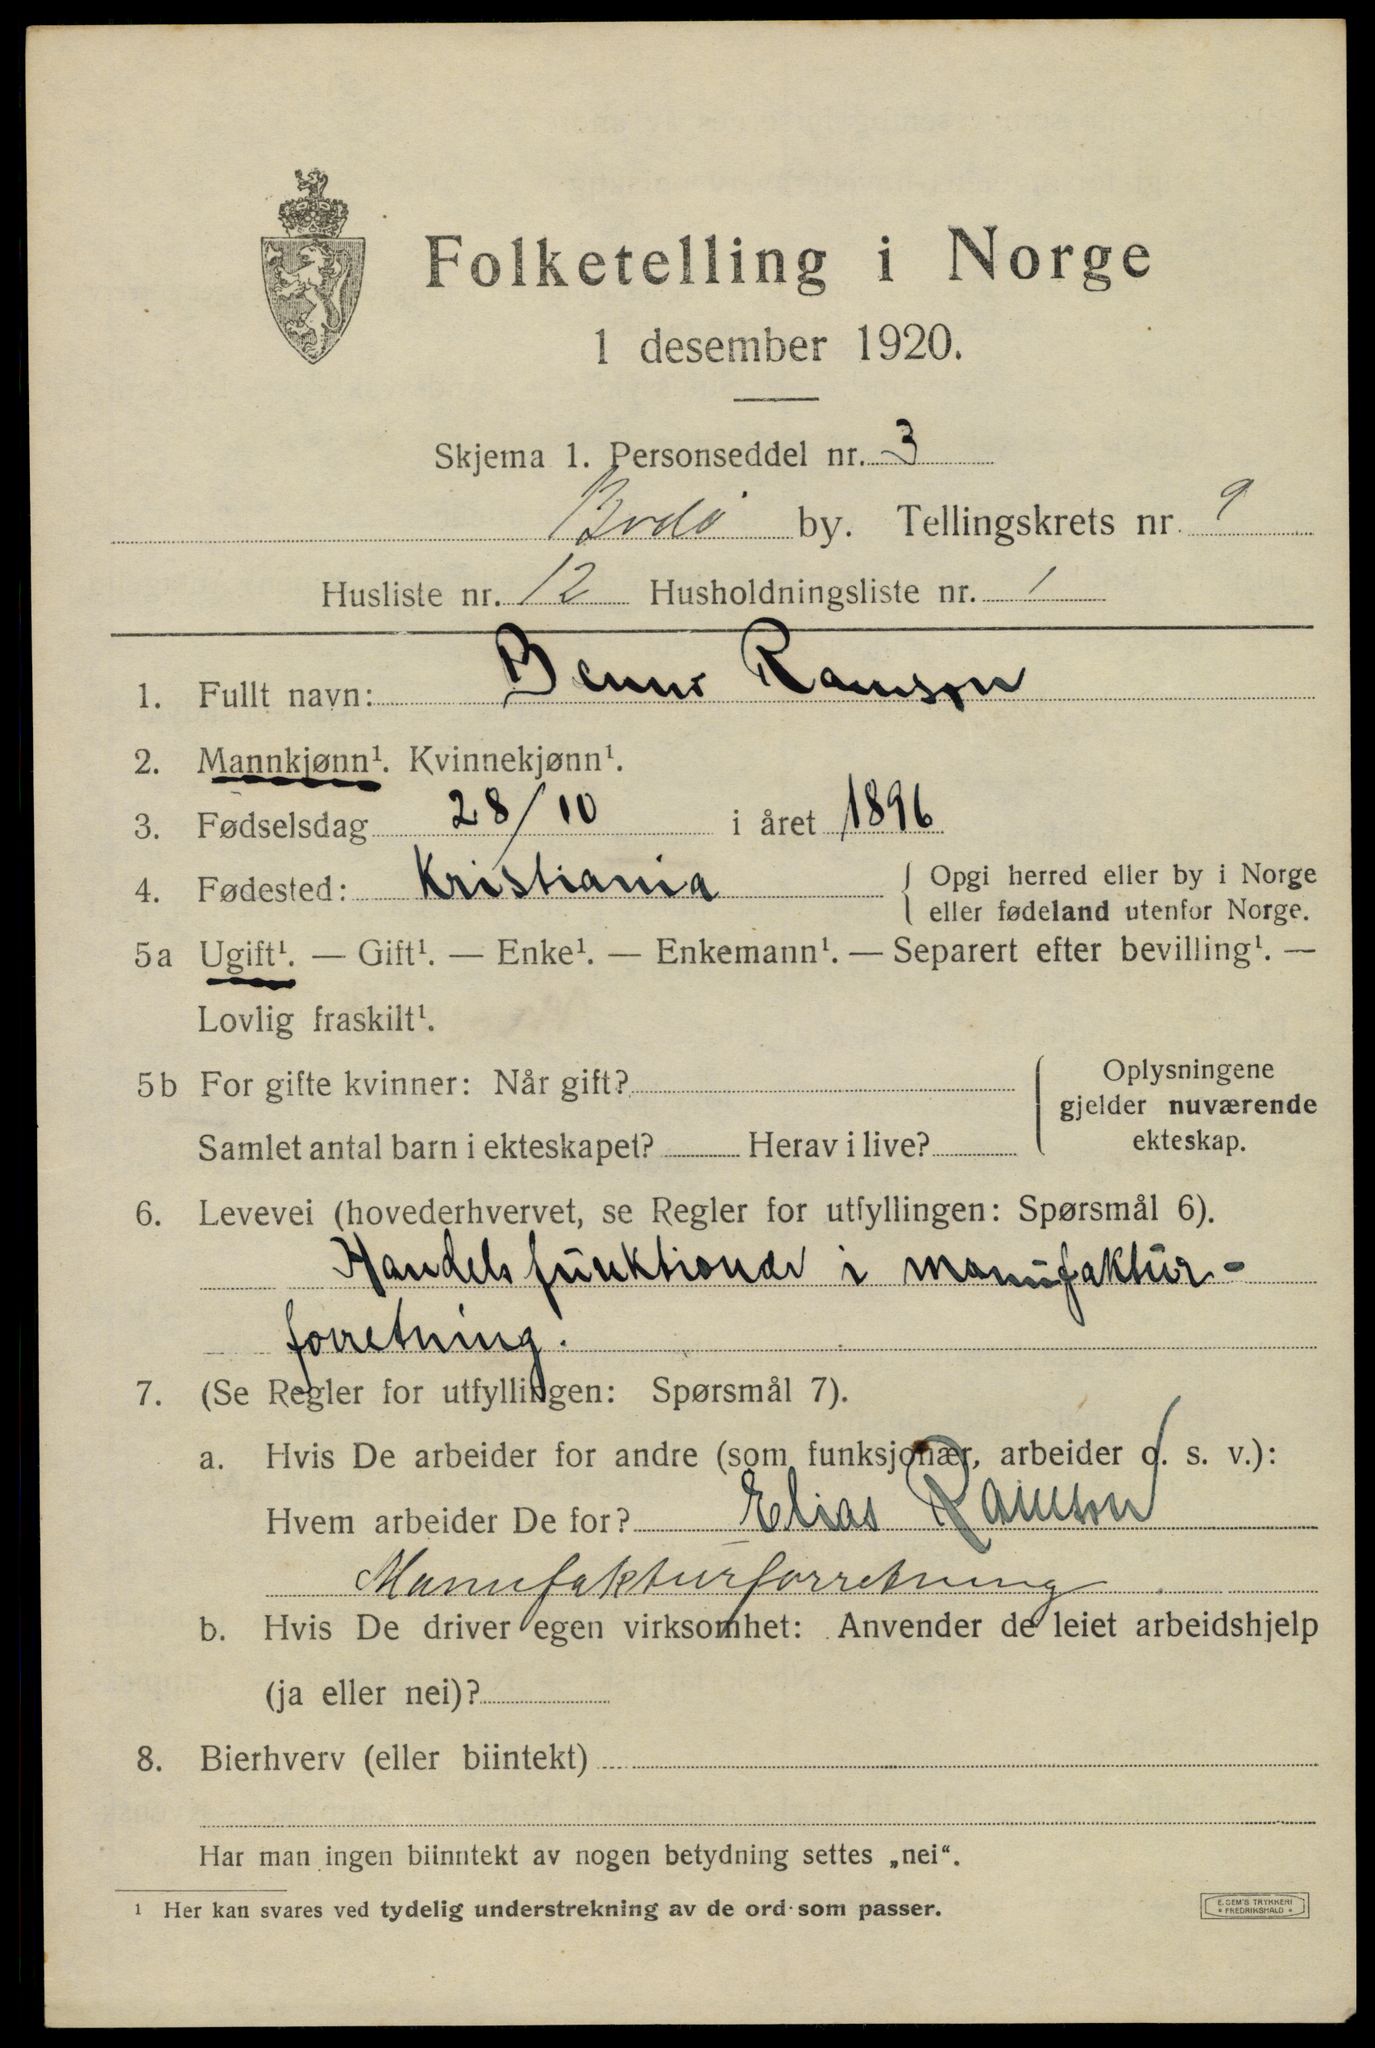 Folketelling i Norge
1 desember 1920.
Skjema 1. Personseddel nr. 3
Bodø by. Tellingskrets nr 9
Husliste nr. 12 Husholdningsliste nr. 1
1. Fullt navn: Benno Ramson
2. Mannkjønn¹. Kvinnekjønn¹.
3. Fødselsdag 28/10 i året 1896
4. Fødested: Kristiania { Opgi herred eller by i Norge
eller fødeland utenfor Norge.
5a Ugift¹. — Gift¹. — Enke¹. — Enkemann¹. — Separert efter bevilling¹. —
Lovlig fraskilt¹.
5b For gifte kvinner: Når gift?
Samlet antal barn i ekteskapet? Herav i live?
Oplysningene
gjelder nuværende
ekteskap.
6. Levevei (hovederhvervet, se Regler for utfyllingen: Spørsmål 6).
Handelsfunktionær i manufaktur-
forretning.
7. (Se Regler for utfyllingen: Spørsmål 7).
a. Hvis De arbeider for andre (som funksjonær, arbeider o. s. v.):
Hvem arbeider De for? Elias Ramson
Manufakturforretning
b. Hvis De driver egen virksomhet: Anvender de leiet arbeidshjelp
(ja eller nei)?
8. Bierhverv (eller biintekt)
Har man ingen biinntekt av nogen betydning settes „nei“.
¹ Her kan svares ved tydelig understrekning av de ord som passer.
E. SEM'S TRYKKERI
* FREDRIKSHALD *